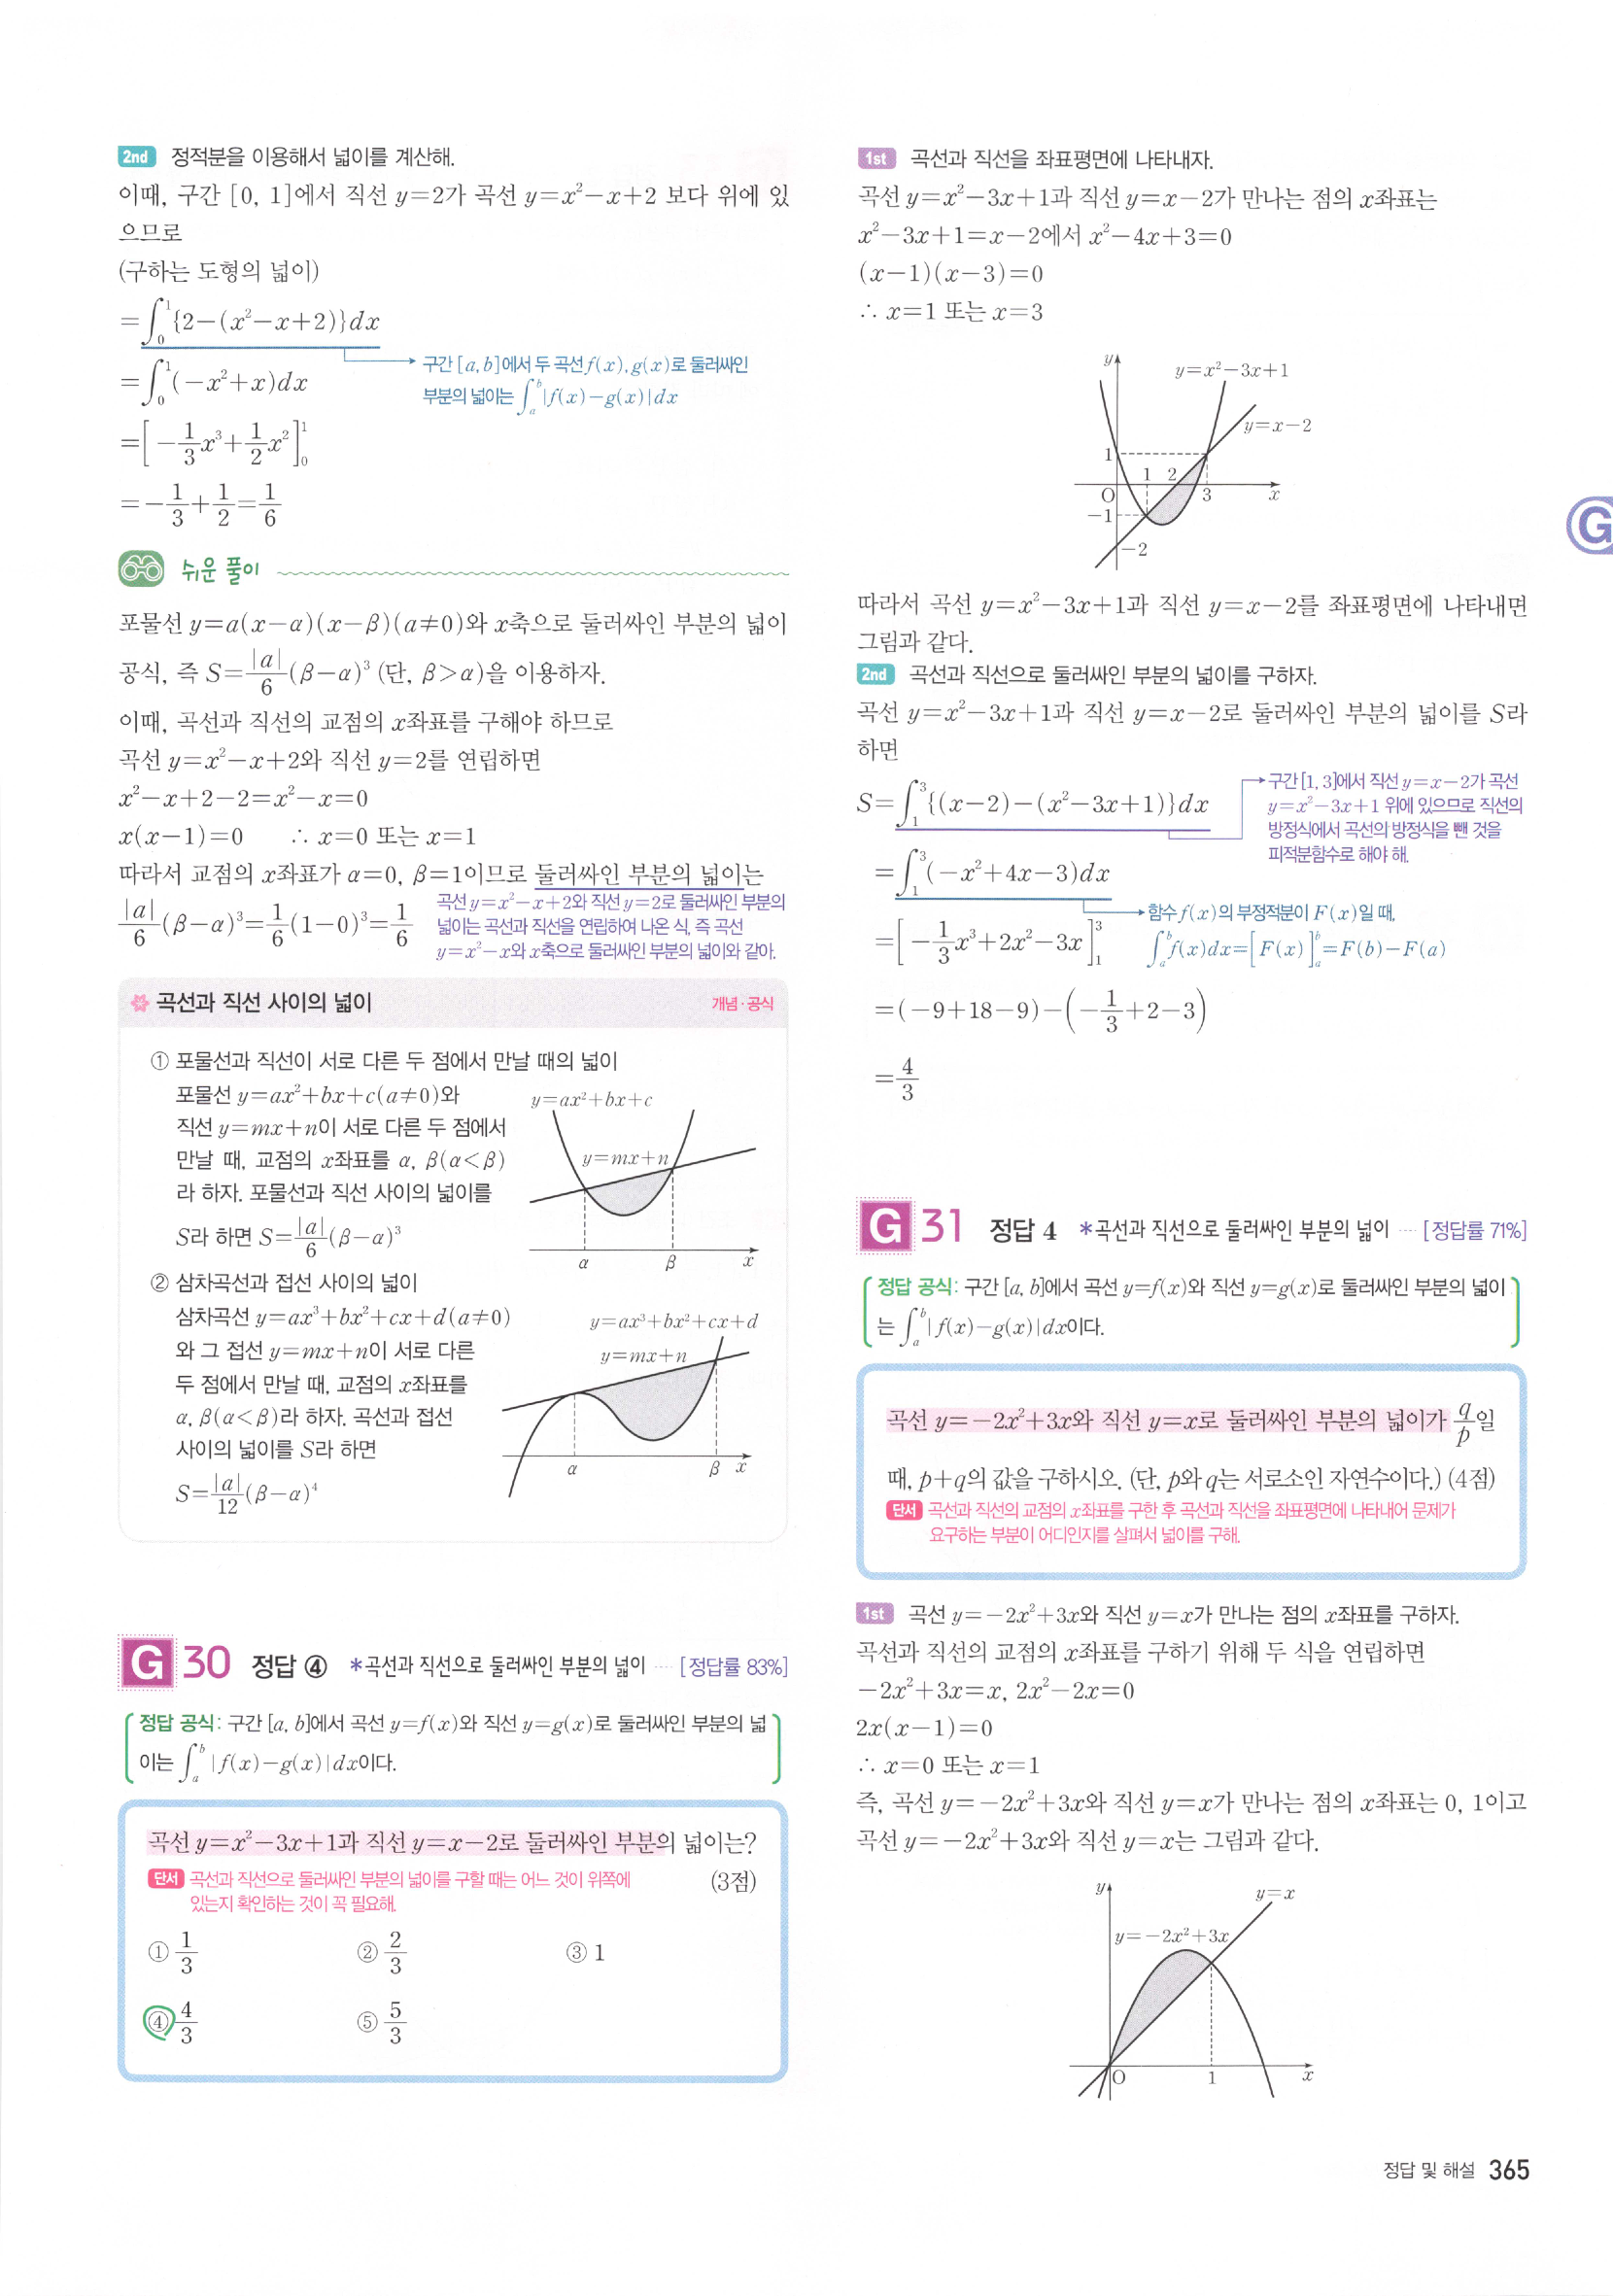 2nd 정적분을 이용해서 넓이를 계산해.
이때, 구간 [0, 1]에서 직선 y=2가 곡선 y=x²-x+2 보다 위에 있
으므로
(구하는 도형의 넓이)
=∫₀¹{2-(x²-x+2)}dx
구간 [a, b]에서 두 곡선 f(x), g(x)로 둘러싸인
=∫₀¹(-x²+x)dx
부분의 넓이는 ∫ₐᵇ|f(x)-g(x)|dx
=[-1/3x³+1/2x²]₀¹
=-1/3+1/2=1/6
쉬운 풀이
포물선 y=a(x-α)(x-β)(a≠0)와 x축으로 둘러싸인 부분의 넓이
공식, 즉 S=|a|/6(β-α)³ (단, β>α)을 이용하자.
이때, 곡선과 직선의 교점의 x좌표를 구해야 하므로
곡선 y=x²-x+2와 직선 y=2를 연립하면
x²-x+2-2=x²-x=0
x(x-1)=0 ∴ x=0 또는 x=1
따라서 교점의 x좌표가 α=0, β=1이므로 둘러싸인 부분의 넓이는
|a|/6(β-α)³=1/6(1-0)³=1/6
곡선 y=x²-x+2와 직선 y=2로 둘러싸인 부분의
넓이는 곡선과 직선을 연립하여 나온 식, 즉 곡선
y=x²-x와 x축으로 둘러싸인 부분의 넓이와 같아.
곡선과 직선 사이의 넓이 개념·공식
① 포물선과 직선이 서로 다른 두 점에서 만날 때의 넓이
포물선 y=ax²+bx+c(a≠0)와
직선 y=mx+n이 서로 다른 두 점에서
만날 때, 교점의 x좌표를 α, β(α<β)
라 하자. 포물선과 직선 사이의 넓이를
S라 하면 S=|a|/6(β-α)³
y=ax²+bx+c
y=mx+n
α β x
② 삼차곡선과 접선 사이의 넓이
삼차곡선 y=ax³+bx²+cx+d(a≠0)
와 그 접선 y=mx+n이 서로 다른
두 점에서 만날 때, 교점의 x좌표를
α, β(α<β)라 하자. 곡선과 접선
사이의 넓이를 S라 하면
S=|a|/12(β-α)⁴
y=ax³+bx²+cx+d
y=mx+n
α β x
G 30 정답 ④ *곡선과 직선으로 둘러싸인 부분의 넓이 ···· [정답률 83%]
정답 공식: 구간 [a, b]에서 곡선 y=f(x)와 직선 y=g(x)로 둘러싸인 부분의 넓
이는 ∫ₐᵇ|f(x)-g(x)|dx이다.
곡선 y=x²-3x+1과 직선 y=x-2로 둘러싸인 부분의 넓이는?
(3점)
단서 곡선과 직선으로 둘러싸인 부분의 넓이를 구할 때는 어느 것이 위쪽에
있는지 확인하는 것이 꼭 필요해.
① 1/3 ② 2/3 ③ 1
④ 4/3 ⑤ 5/3
1st 곡선과 직선을 좌표평면에 나타내자.
곡선 y=x²-3x+1과 직선 y=x-2가 만나는 점의 x좌표는
x²-3x+1=x-2에서 x²-4x+3=0
(x-1)(x-3)=0
∴ x=1 또는 x=3
y
y=x²-3x+1
y=x-2
1
1 2
O 3 x
-1
-2
G
따라서 곡선 y=x²-3x+1과 직선 y=x-2를 좌표평면에 나타내면
그림과 같다.
2nd 곡선과 직선으로 둘러싸인 부분의 넓이를 구하자.
곡선 y=x²-3x+1과 직선 y=x-2로 둘러싸인 부분의 넓이를 S라
하면
S=∫₁³{(x-2)-(x²-3x+1)}dx
구간 [1, 3]에서 직선 y=x-2가 곡선
y=x²-3x+1 위에 있으므로 직선의
방정식에서 곡선의 방정식을 뺀 것을
피적분함수로 해야 해.
=∫₁³(-x²+4x-3)dx
함수 f(x)의 부정적분이 F(x)일 때,
∫ₐᵇf(x)dx=[F(x)]ₐᵇ=F(b)-F(a)
=[-1/3x³+2x²-3x]₁³
=(-9+18-9)-(-1/3+2-3)
=4/3
G 31 정답 4 *곡선과 직선으로 둘러싸인 부분의 넓이 ··· [정답률 71%]
정답 공식: 구간 [a, b]에서 곡선 y=f(x)와 직선 y=g(x)로 둘러싸인 부분의 넓이
는 ∫ₐᵇ|f(x)-g(x)|dx이다.
곡선 y=-2x²+3x와 직선 y=x로 둘러싸인 부분의 넓이가 q/p일
때, p+q의 값을 구하시오. (단, p와 q는 서로소인 자연수이다.) (4점)
단서 곡선과 직선의 교점의 x좌표를 구한 후 곡선과 직선을 좌표평면에 나타내어 문제가
요구하는 부분이 어디인지를 살펴서 넓이를 구해.
1st 곡선 y=-2x²+3x와 직선 y=x가 만나는 점의 x좌표를 구하자.
곡선과 직선의 교점의 x좌표를 구하기 위해 두 식을 연립하면
-2x²+3x=x, 2x²-2x=0
2x(x-1)=0
∴ x=0 또는 x=1
즉, 곡선 y=-2x²+3x와 직선 y=x가 만나는 점의 x좌표는 0, 1이고
곡선 y=-2x²+3x와 직선 y=x는 그림과 같다.
y
y=x
y=-2x²+3x
O 1 x
정답 및 해설 365